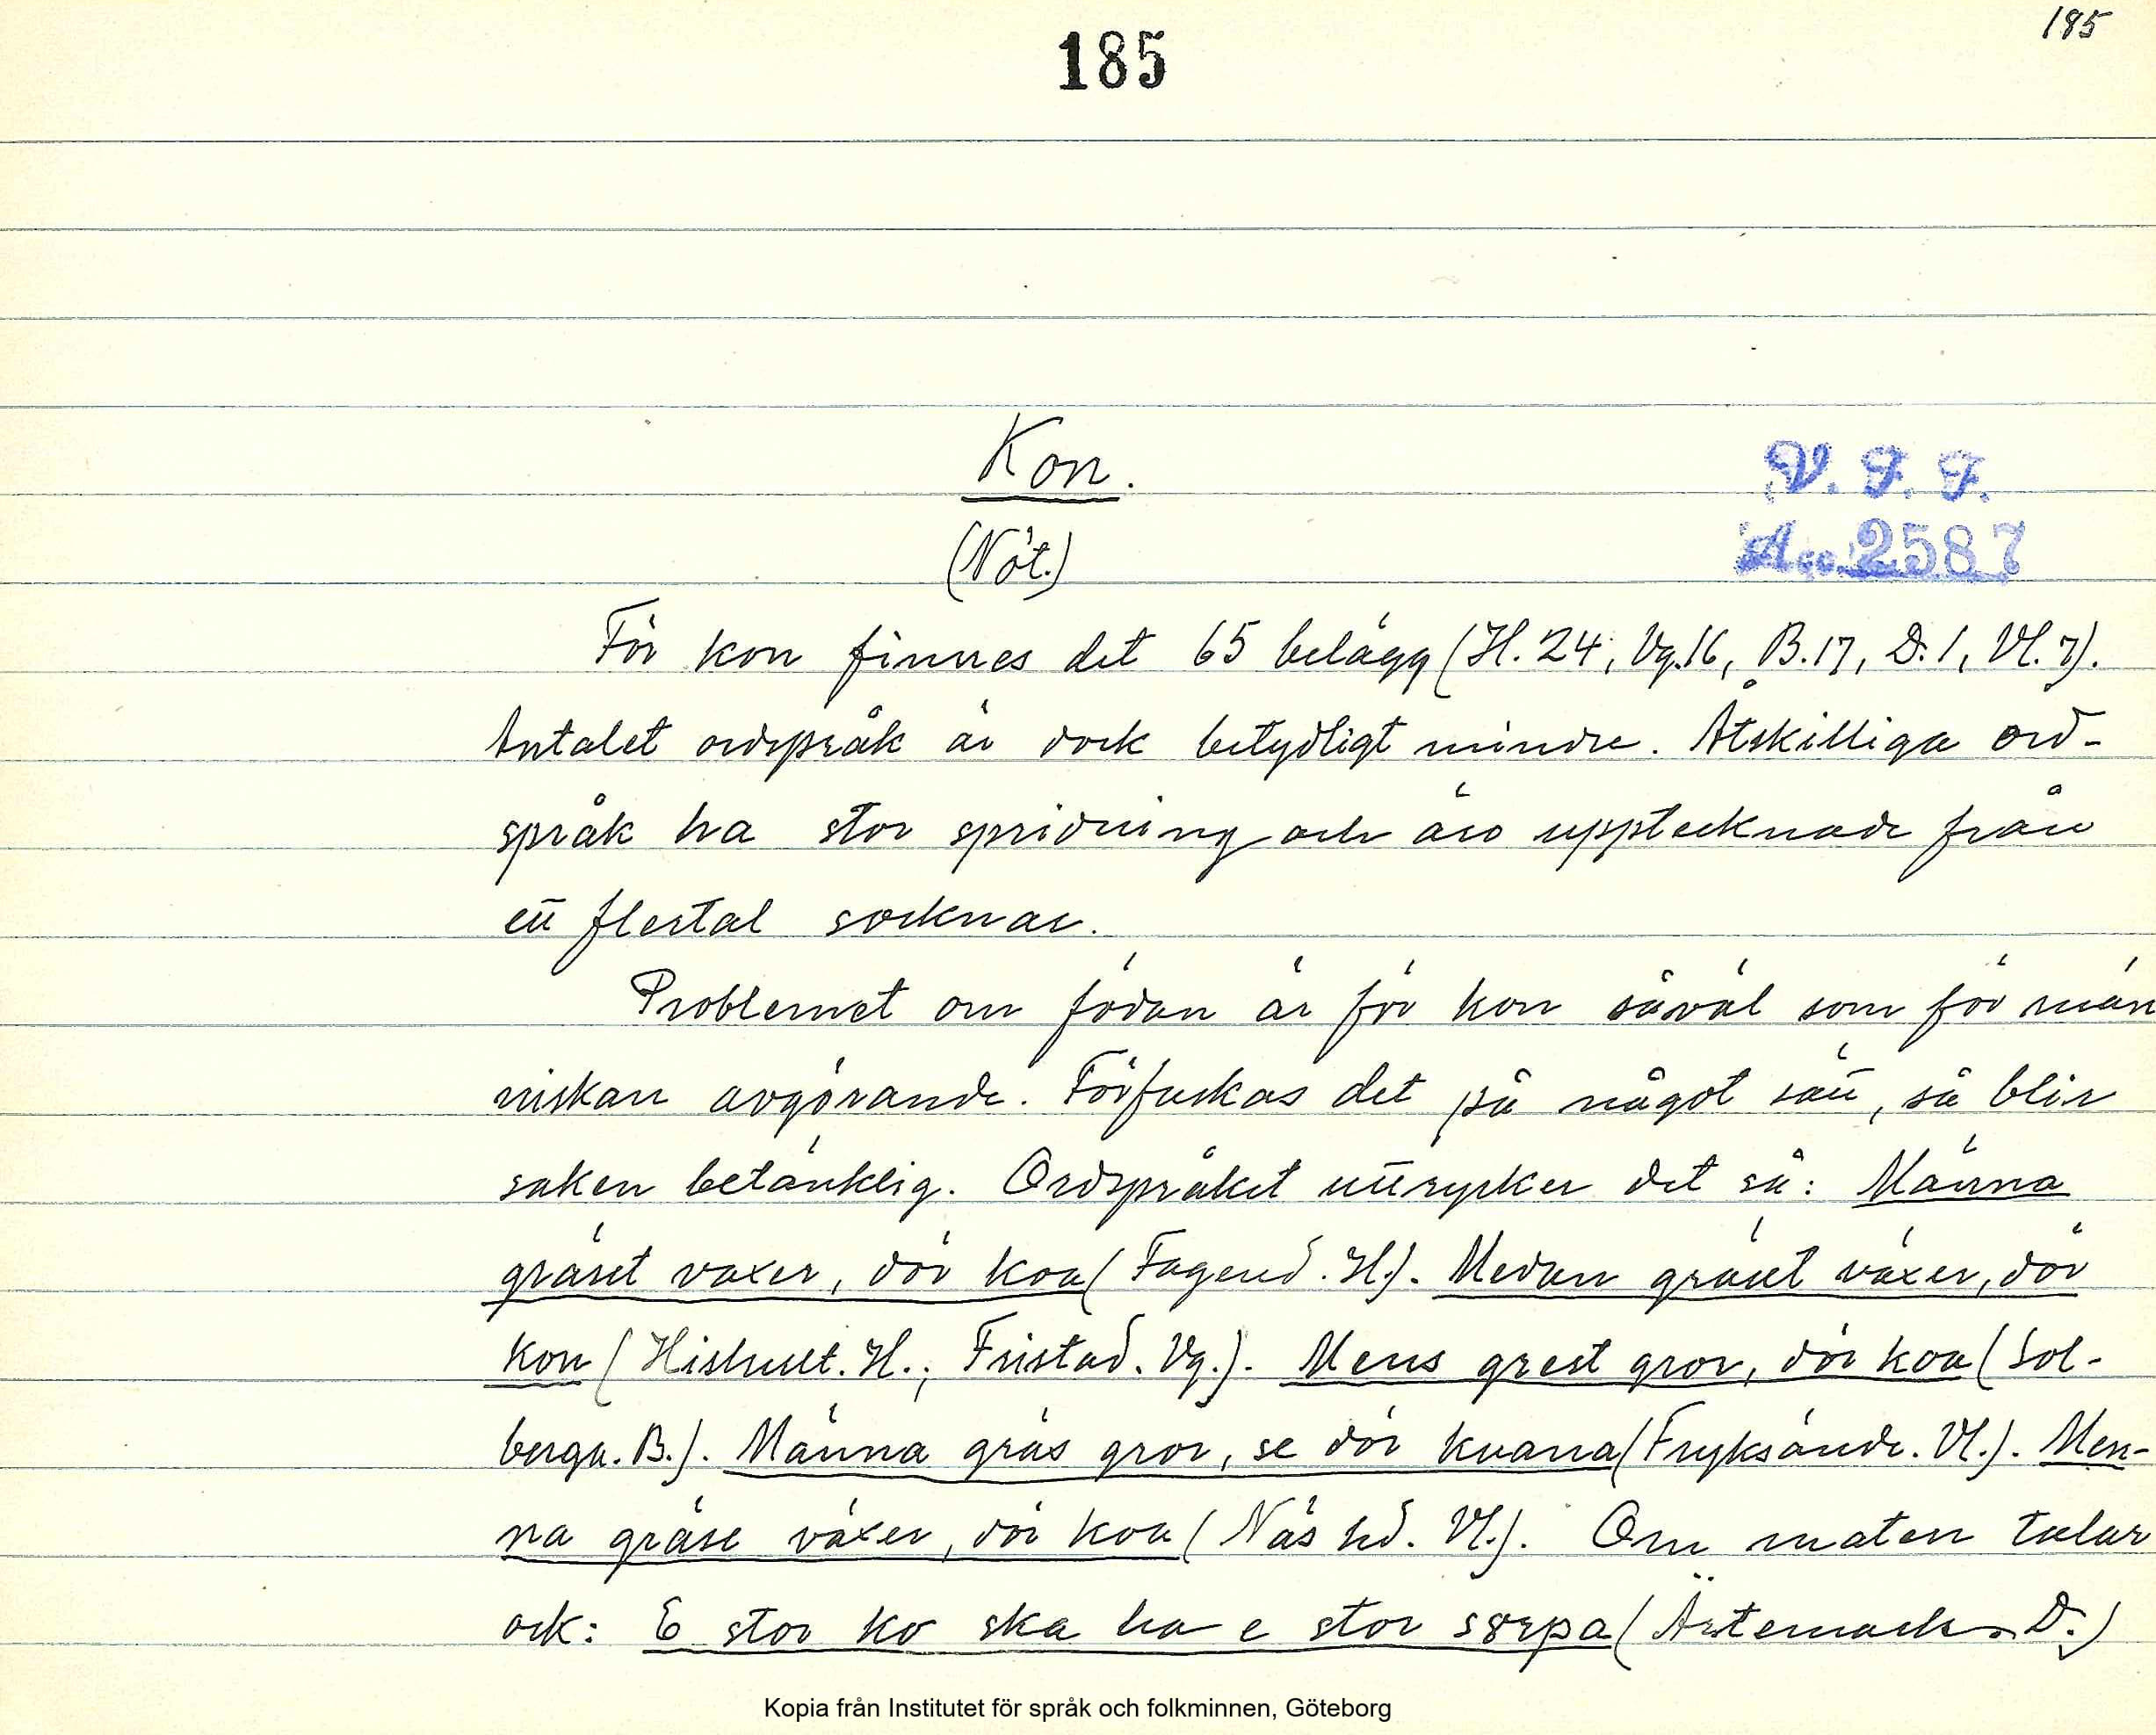 185
185
Kon.
V. F. F.
(Nöt.)
Acc. 2587
För kon finnes det 65 belägg (H. 24, Vg. 16, B. 17, D. 1, Vl. 7).
Antalet ordspråk är dock betydligt mindre. Åtskilliga ord-
språk ha stor spridning och äro upptecknade från
ett flertal socknar.
Problemet om födan är för kon såväl som för män
niskan avgörande. Förfuskas det på något sätt, så blir
saken betänklig. Ordspråket uttrycker det så: Männa
gräset vaxer, dör koa (Fagered. H.). Medan gräset växer, dör
kon (Hishult. H., Fristad. Vg.). Mens grest gror, dör koa (Sol-
berga. B.). Männa gräs gror, se dör kuana (Fryksände. Vl.). Men-
na gräse växer, dör koa (Näs hd. Vl.). Om maten talar
ock: E stor ko ska ha e stor sörpa (Ärtemark. D.)
Kopia från Institutet för språk och folkminnen, Göteborg